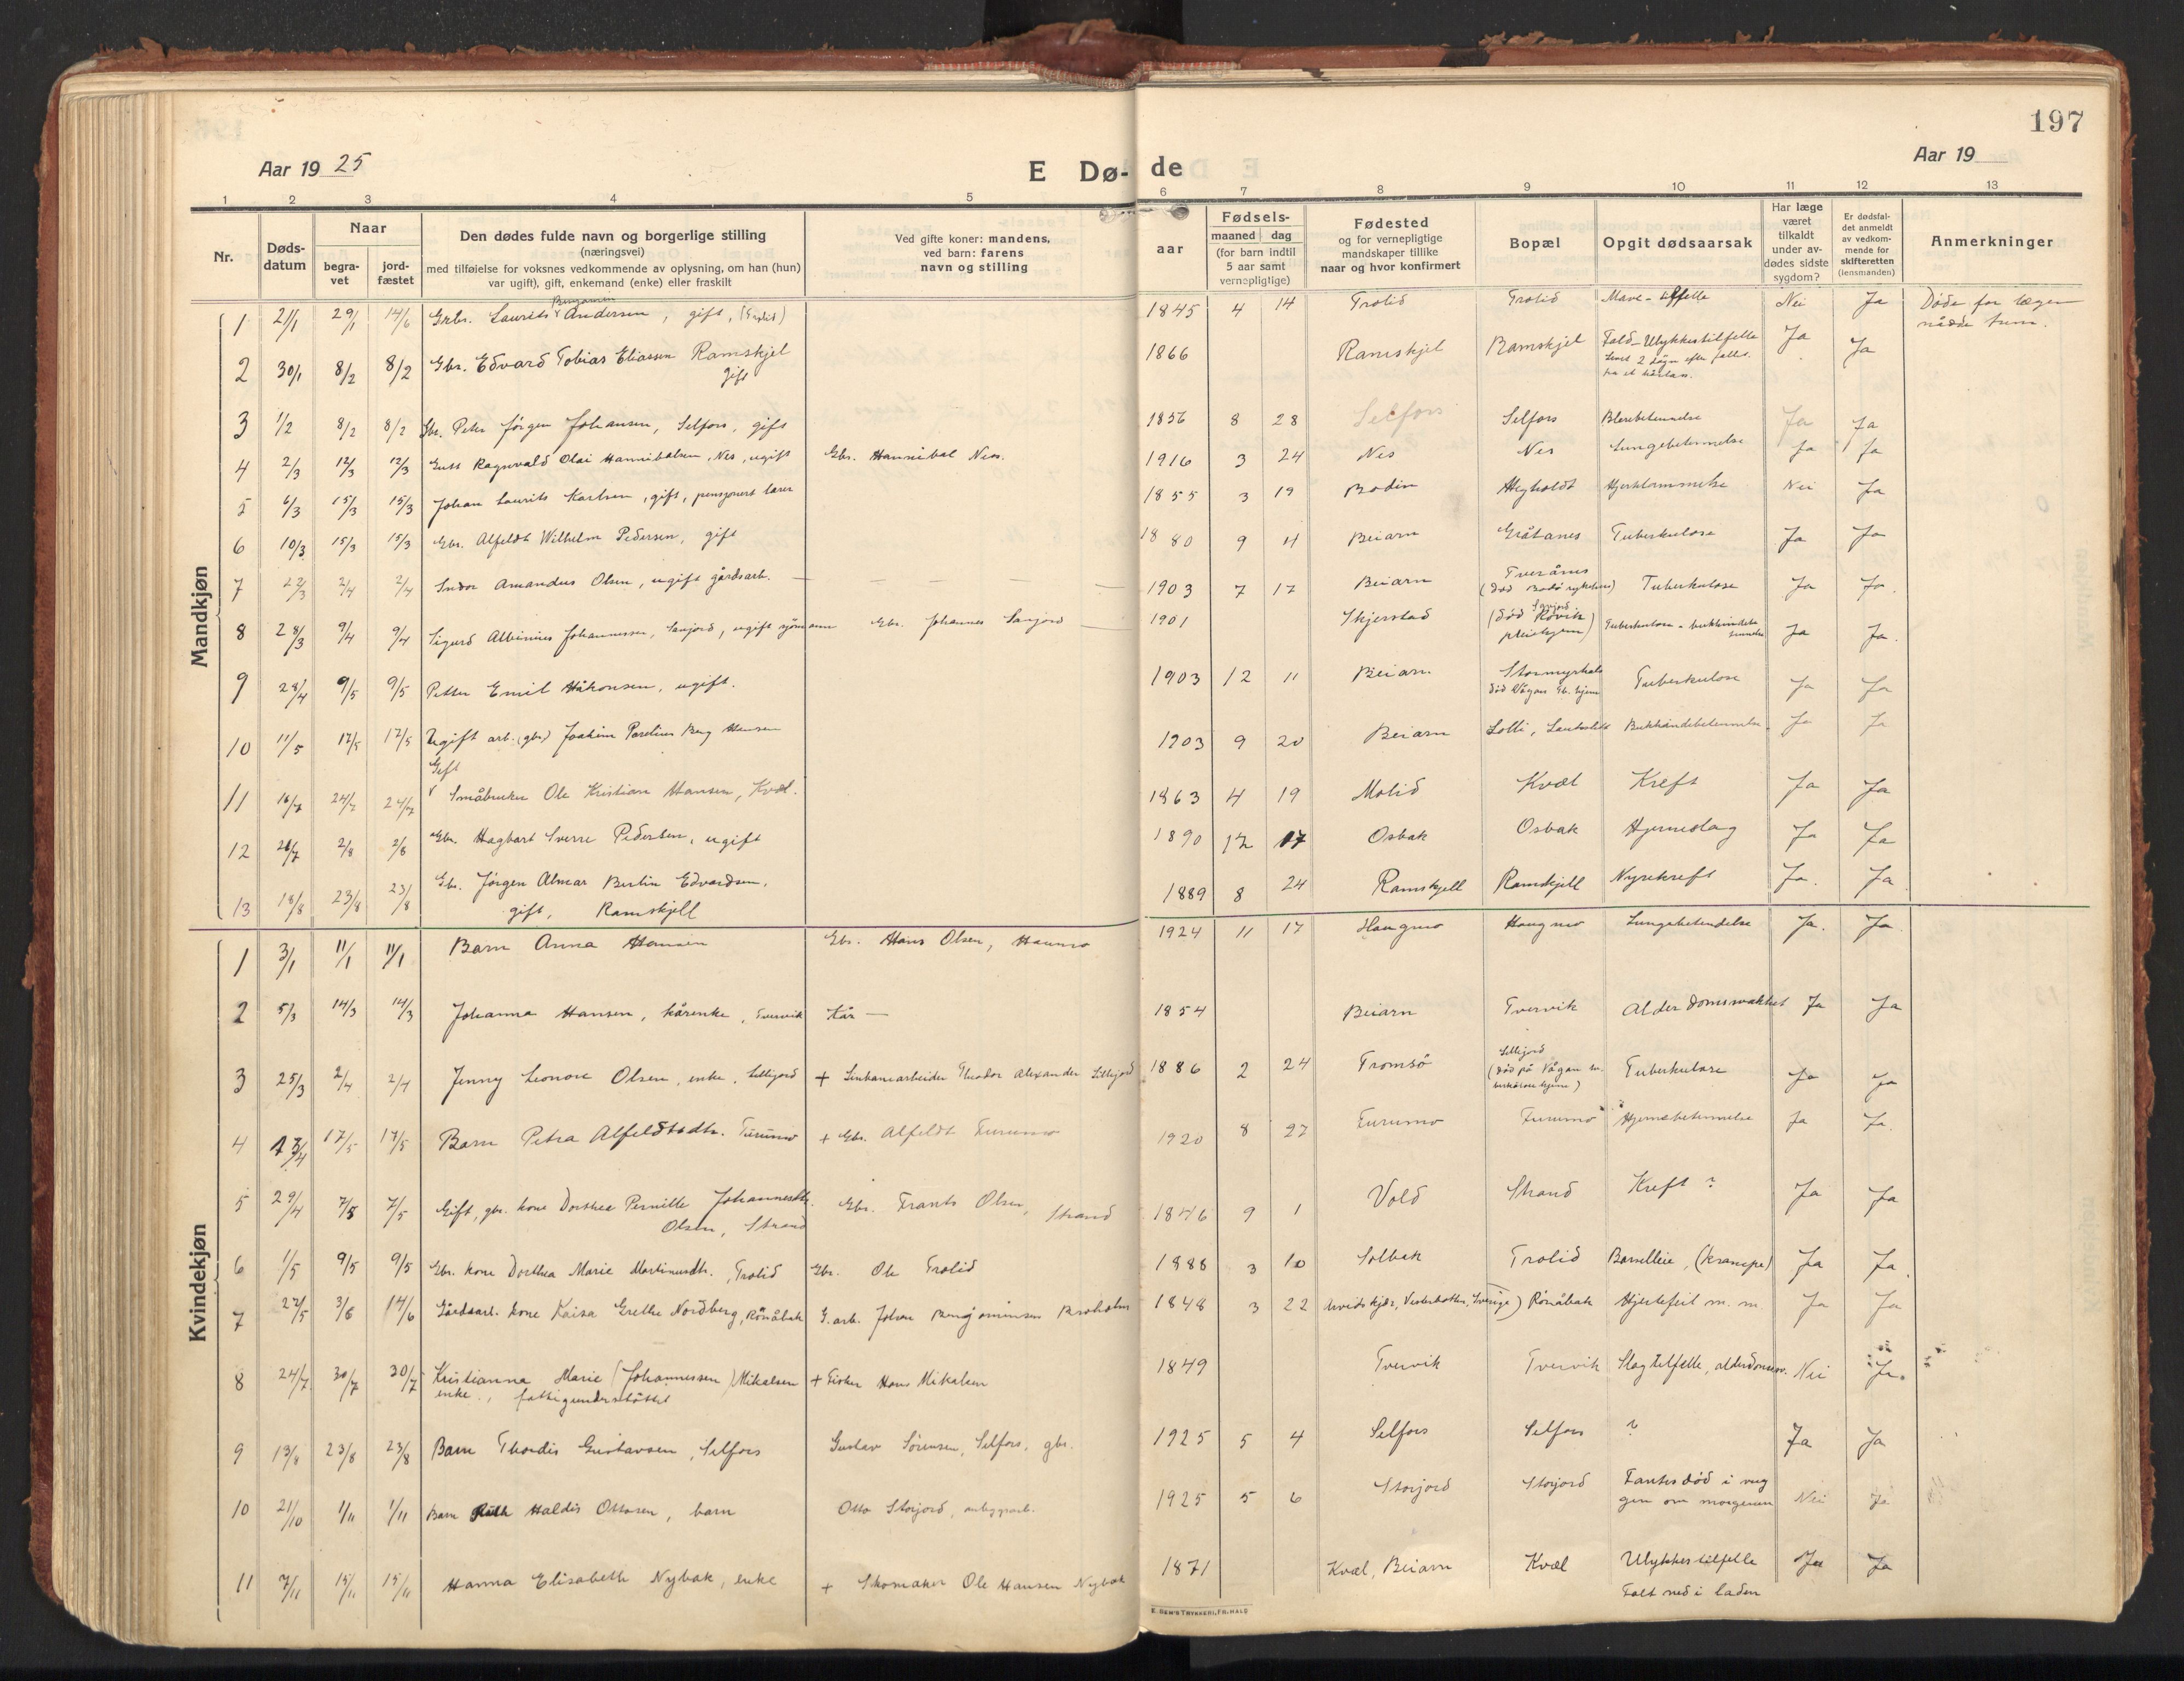 197
Aar 19 25
E Dø- de
Aar 19
1 2 3 4 5 6 7 8 9 10 11 12 13
Nr.
Døds-
datum
Naar
begra-
vet
jord-
fæstet
Den dødes fulde navn og borgerlige stilling
(næringsvei)
med tilføielse for voksnes vedkommende av oplysning, om han (hun)
var ugift), gift, enkemand (enke) eller fraskilt
Ved gifte koner: mandens,
ved barn: farens
navn og stilling
aar
Fødsels-
maaned dag
(for barn indtil
5 aar samt
vernepligtige)
Fødested
og for vernepligtige
mandskaper tillike
naar og hvor konfirmert
Bopæl
Opgit dødsaarsak
Har læge
været
tilkaldt
under av-
dødes sidste
sygdom?
Er dødsfal-
det anmeldt
av vedkom-
mende for
skifteretten
(lensmanden)
Anmerkninger
Mandkjøn
Benjamin
1 21/1 29/1 14/6 Gbr. Laurits Andersen, gift, 1845 4 14 Trolid Trolid Mave- Nei Ja Døde før lægen
nådde frem.
2 30/1 8/2 8/2 Gbr. Edvard Tobias Eliassen Ramskjel 1866 Ramskjel Ramskjel Fald-Ulykkestilfelle Ja Ja
gift Levet 2 døgn efter faldet
fra et
3 1/2 8/2 8/2 Gbr. Peter Jørgen Johansen, Selfors, gift 1856 8 28 Selfors Selfors Blærebetennelse Ja Ja
4 2/3 12/3 12/3 Gutt Ragnvald Olai Hannibalsen, Nes, ugift Gbr. Hannibal Nes. 1916 3 24 Nes Nes Lungebetennelse Ja Ja
5 6/3 15/3 15/3 Johan Laurits Karlsen, gift, pensjonert lærer 1855 3 19 Bodin Høgholdt Hjertelammelse Nei Ja
6 10/3 15/3 15/3 Gbr. Alfeldt Wilhelm Pedersen, gift 1880 9 4 Beiarn Gråtanes Tuberkulose Ja Ja
7 22/3 2/4 2/4 Indor Amandus Olsen, ugift gårdsarb. 1903 7 17 Beiarn Tverånes
(død Bodø sykehus) Tuberkulose Ja Ja.
8 28/3 9/4 9/4 Sigurd Albinius Johannessen, Savjord, ugift sjømann Gbr. Johannes Savjord 1901 Skjerstad Savjord
(død Røvik
pleiehjem) Tuberkulose - bukhindebetennelse Ja Ja.
9 28/4 9/5 9/5 Petter Emil Håkonsen, ugift. 1903 12 11 Beiarn Stormyrhals
død Vågan tb. hjem Tuberkulose Ja Ja
10 11/5 17/5 17/5 Ugift arb. (gbr) Joakim Parelius Berg Hansen 1903 9 20 Beiarn Solli, Bukhindebetennelse Ja Ja
Gift
11 16/7 24/7 24/7 Småbruker Ole Kristian Hansen, Kvæl. 1863 4 19 Molid Kvæl Kreft Ja Ja
12 26/7 2/8 2/8 Gbr. Hagbart Sverre Pedersen, ugift 1890 12 17 Osbak Osbak Hjerneslag Ja Ja
13 18/8 23/8 23/8 Gbr. Jørgen Almar Berlin Edvardsen. 1889 8 24 Ramskjell Ramskjell Nyrekreft Ja. Ja
gift, Ramskjell
Kvindekjøn
1 3/1 11/1 11/1 Barn Anna Hansen Gbr. Hans Olsen, Haumo 1924 11 17 Haugmo Haugmo Lungebetendelse Ja. Ja
2 5/3 14/3 14/3 Johanna Hansen, kårenke, Tvervik Kår — 1854 Beiarn Tvervik Alderdomssvakhet Ja Ja
3 25/3 2/4 2/4 Jenny Leonore Olsen, enke, Lillejord + Linbanearbeider Theodor Alexander Lillejord 1886 2 24 Tromsø Lillejord
(død på Vågan tu-
berkulosehjem) Tuberkulose Ja Ja
4 13/4 17/5 17/5 Barn Petra Alfeldtsdtr. Furumo + Gbr. Alfeldt Furumo 1920 8 27 Furumo Furumo Hjernebetennelse Ja Ja.
5 29/4 7/5 7/5 Gift, gbr. kone Dorthea Pernille Johannesdtr. Gbr. Frants Olsen, Strand 1846 9 1 Vold Strand Kreft ? Ja Ja
Olsen, Strand
6 1/5 9/5 9/5 Gbr. kone Dorthea Marie Martinusdtr., Trolid Gbr. Ole Trolid 1888 3 10 Solbak Trolid Barselleie, (krampe) Ja Ja.
7 22/5 3/6 14/6 Gårdsarb. kone Kaisa Grethe Nordberg, Rønåbak G. arb. Johan Benjaminsen Broholm 1848 3 22 Arvidskjær, Vesterbotten, Sverige) Rønåbak Hjertefeil m. m. Ja Ja
8 24/7 30/7 30/7 Kristianna Marie (Johannessen) Mikalsen + Fisker Hans Mikalsen 1849 Tvervik Tvervik Slagtilfelle, alderdomssv. Nei Ja.
enke., fattigunderstøttet
9 13/8 23/8 23/8 Barn Thordis Gustavsen, Selfors Gustav Sørensen, Selfors, gbr. 1925 5 4 Selfors Selfors ? Ja Ja
10 21/10 1/11 1/11 Barn Ruth Haldis Ottosen, barn Otto Storjord, anleggsarb. 1925 5 6 Storjord Storjord Fantes død i vug
gen om morgenen Nei Ja
11 7/11 15/11 15/11 Hanna Elisabeth Nybak, enke + Skomaker Ole Hansen Nybak 1871 Kvæl, Beiarn Kvæl Ulykkestilfelle Ja Ja
Falt ned i laden
E. SEM'S TRYKKERI, FR.HALD